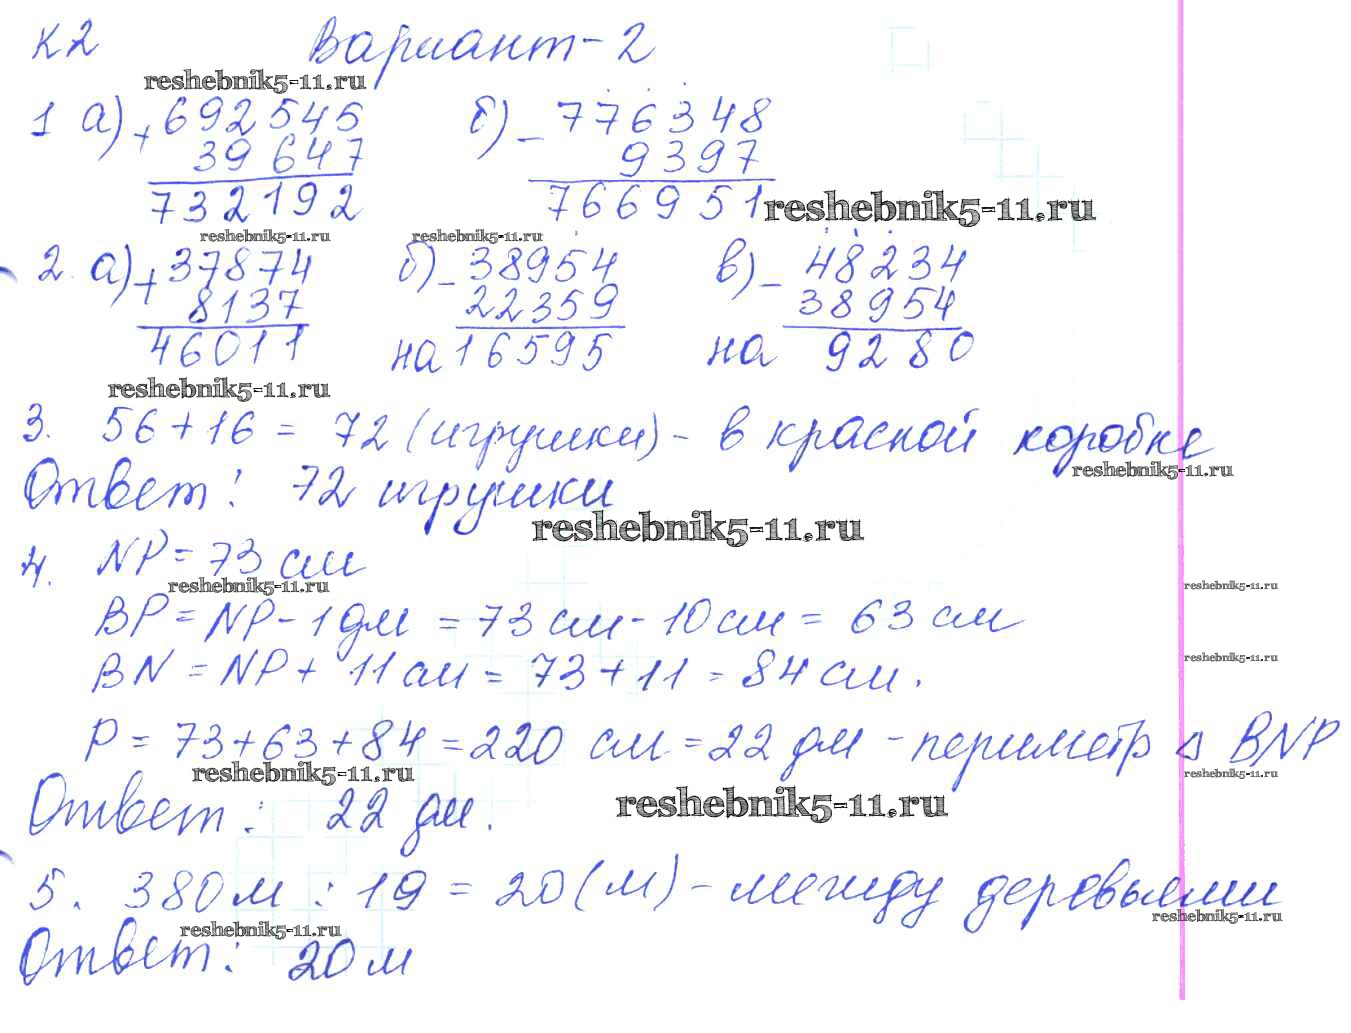 К2 Вариант-2
reshebnik5-11.ru
1 а) + 692545 б) - 776348
39647 9397
732192 766951 reshebnik5-11.ru
reshebnik5-11.ru reshebnik5-11.ru
2. а) + 37874 б) - 38954 в) - 48234
8137 22359 38954
46011 на 16595 на 9280
reshebnik5-11.ru
3. 56+16 = 72 (игрушки) - в красной коробке
reshebnik5-11.ru
Ответ: 72 игрушки
reshebnik5-11.ru
4. NP = 73 см
reshebnik5-11.ru reshebnik5-11.ru
BP = NP - 1 дм = 73 см - 10 см = 63 см
BN = NP + 11 см = 73 + 11 = 84 см.
reshebnik5-11.ru
P = 73+63+84 = 220 см = 22 дм - периметр Δ BNP
reshebnik5-11.ru reshebnik5-11.ru
Ответ: 22 дм.
reshebnik5-11.ru
5. 380 м : 19 = 20 (м) - между деревьями
reshebnik5-11.ru reshebnik5-11.ru
Ответ: 20 м